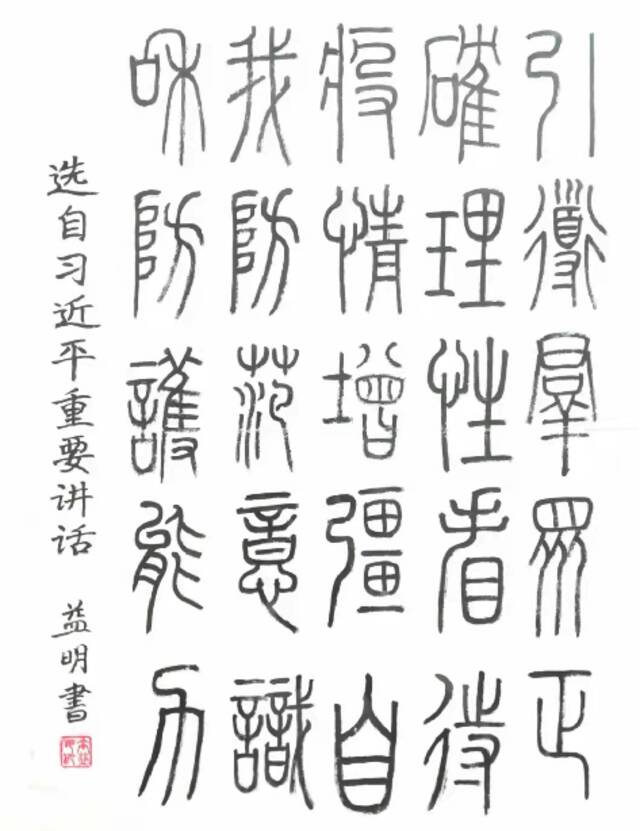 引導羣眾正
確理性看待
疫情增彊自
我防范意識
和防護能力
选自习近平重要讲话 益明書